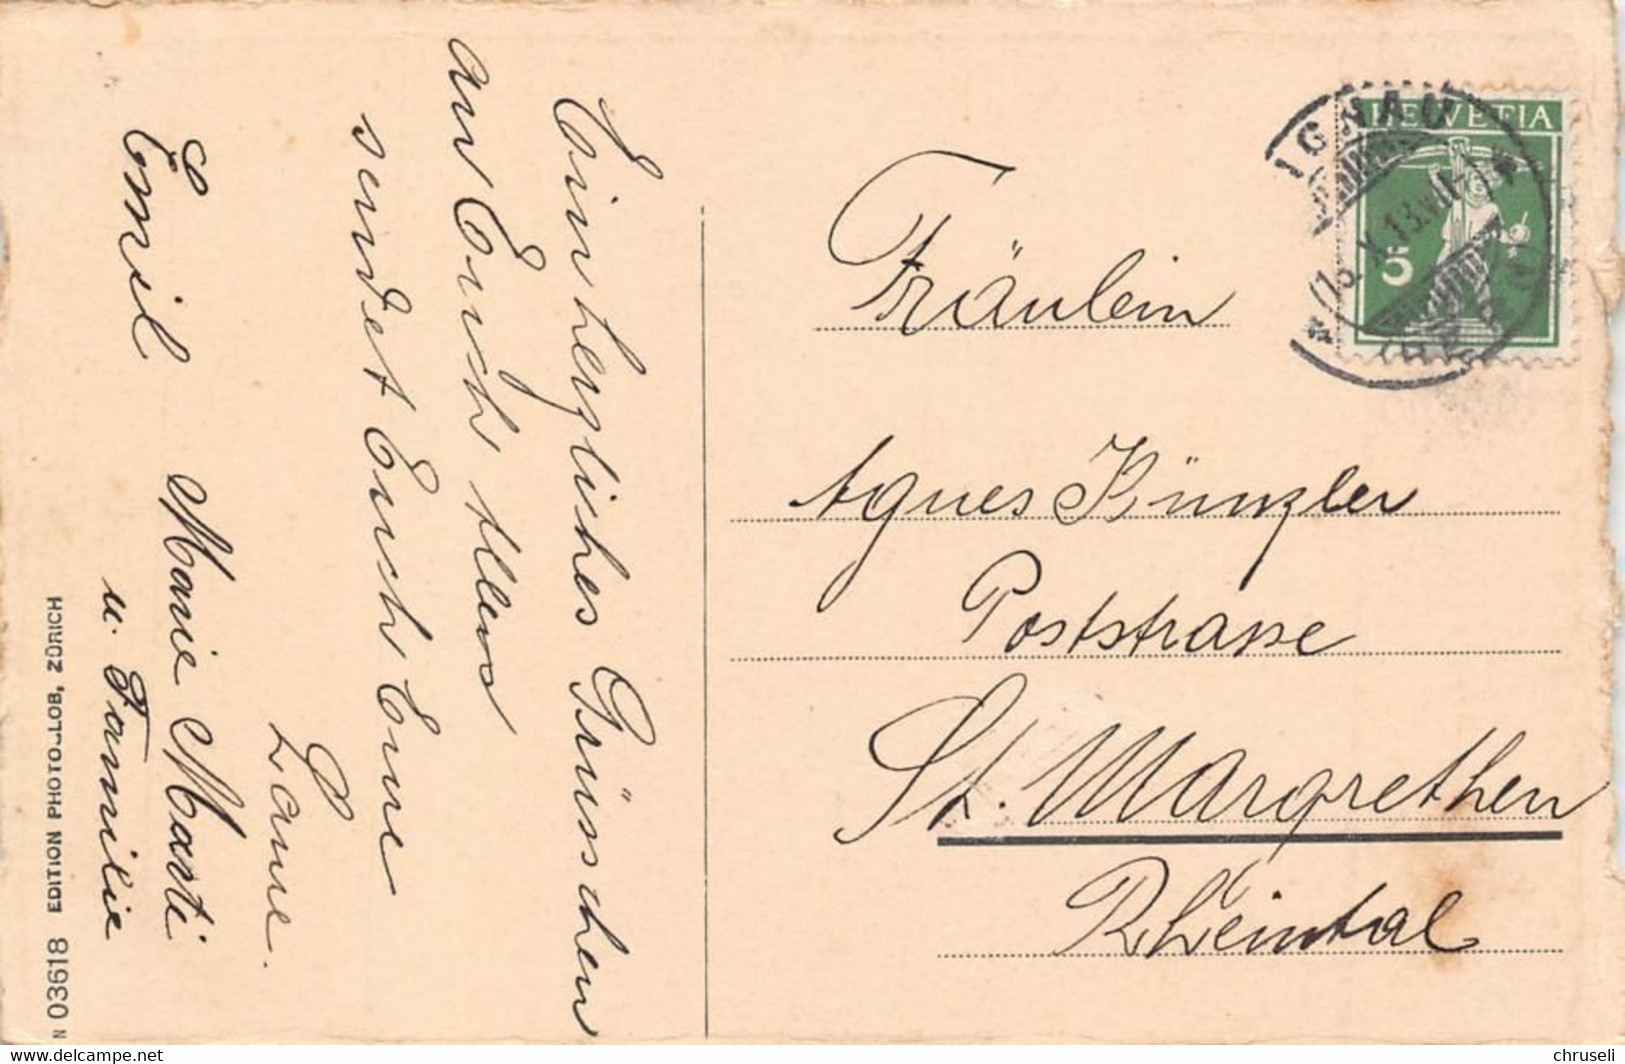 Ein herzliches Grüsschen
an Euch Allen
sendet Euch Eure
Laure.
Emil
Marie Marti
u. Familie
N 03618 EDITION PHOTOGLOB, ZÜRICH
HELVETIA
5
Fräulein
Agnes Künzler
Poststrasse
St. Margrethen
Rheintal
https://www.delcampe.net
chruseli